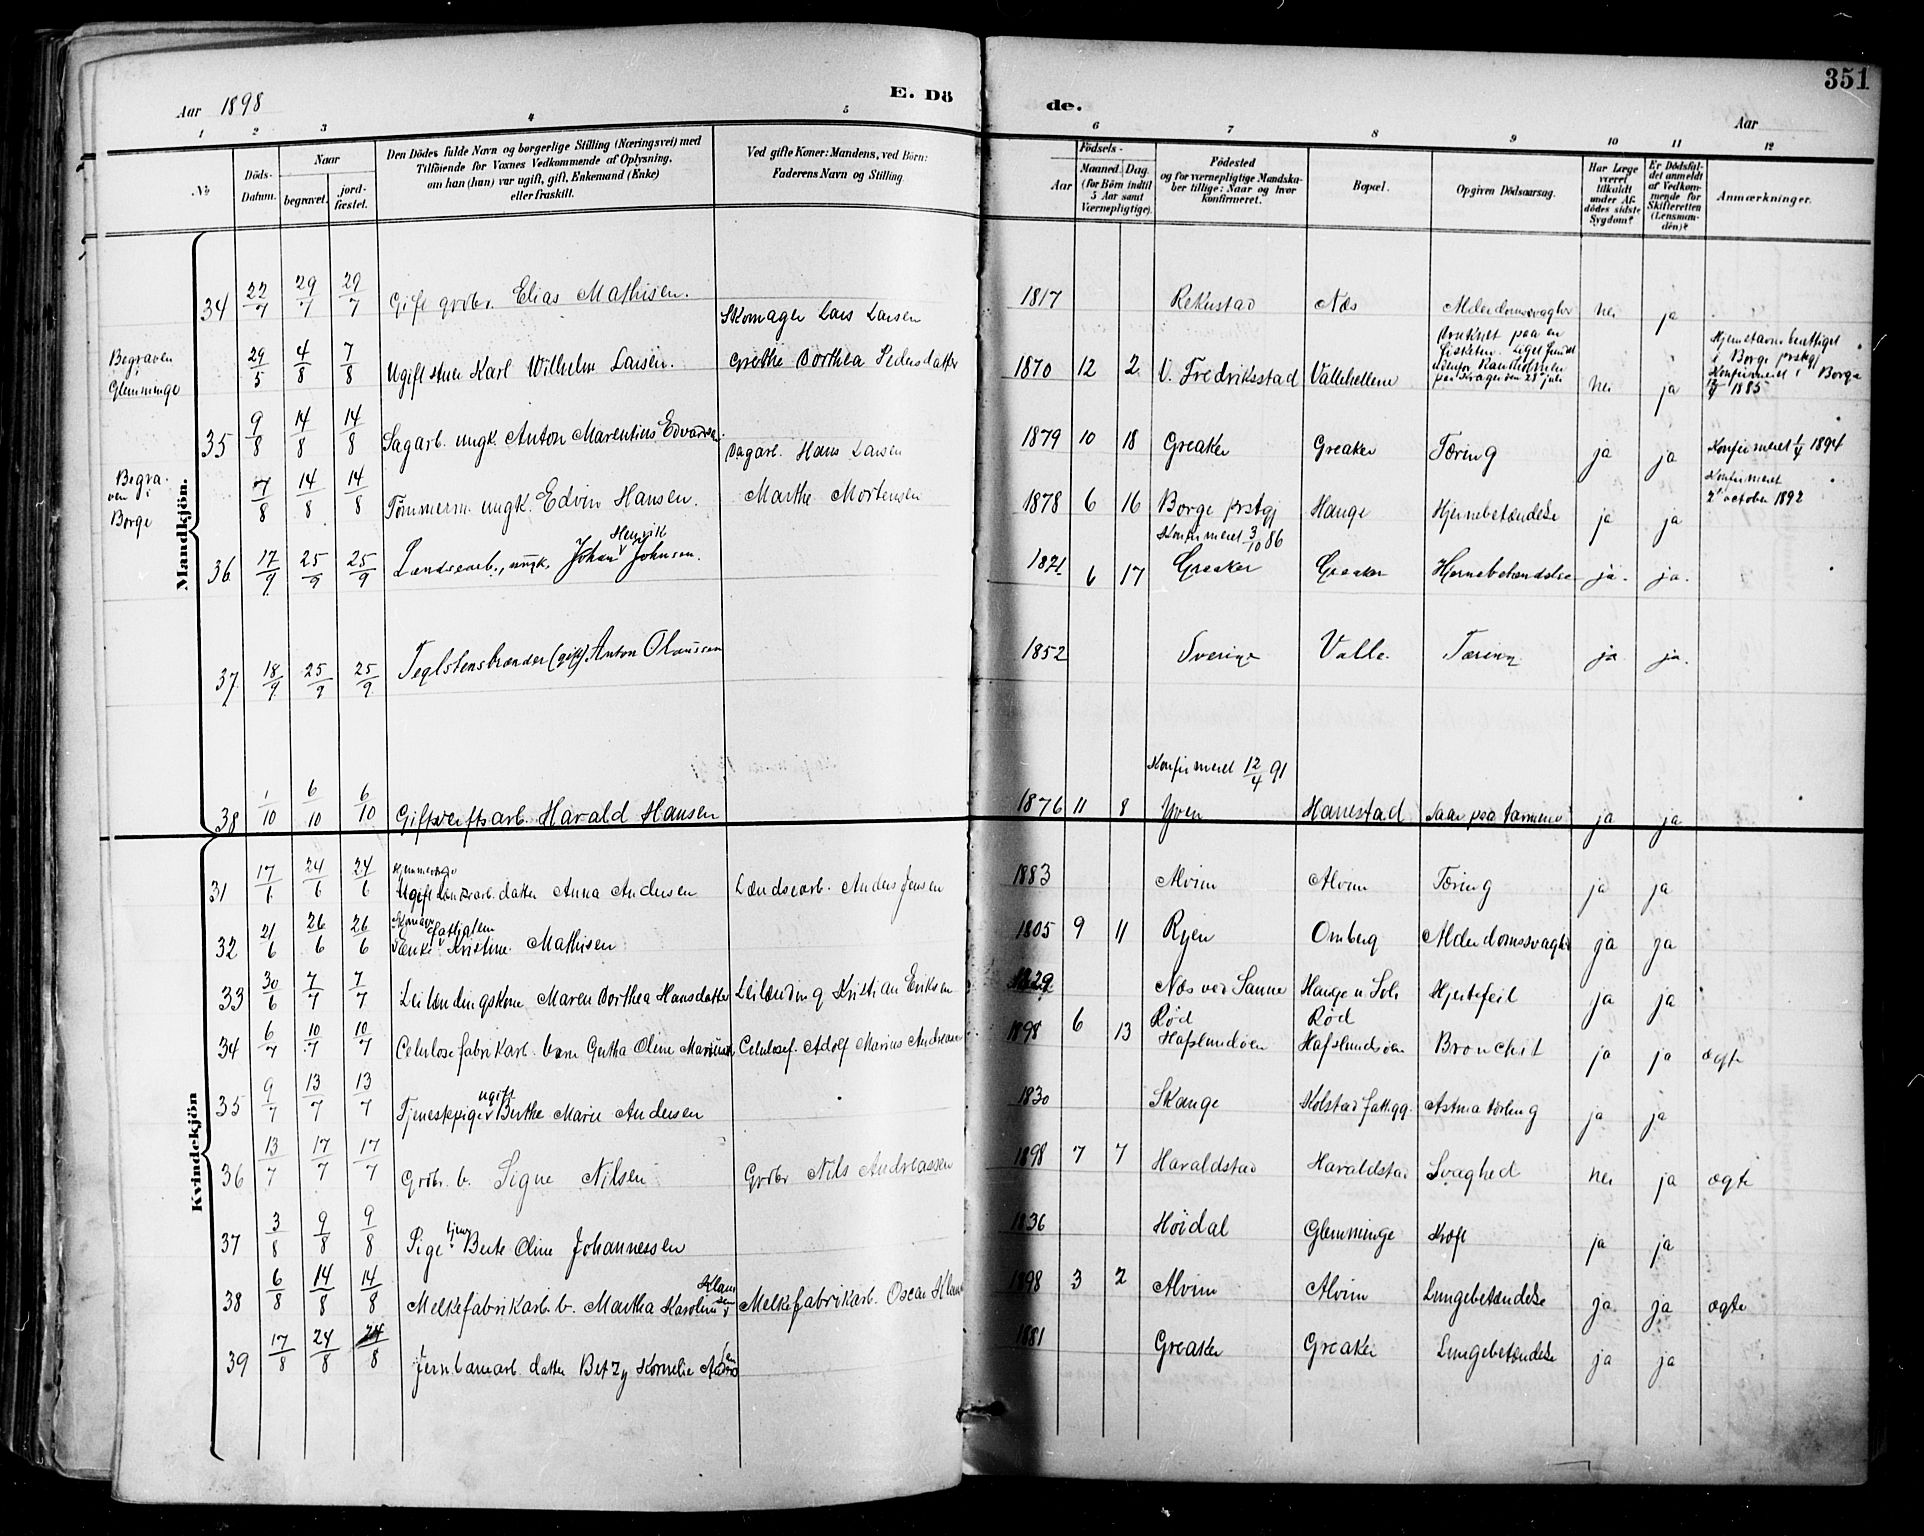 351
Aar 1898 E. Dö de. Aar
1 2 3 4 5 6 7 8 9 10 11 12
No
Döds-Datum.
Naar
begravet.
jord-fæstet.
Den Dödes fulde Navn og borgerlige Stilling (Næringsvei) med
Tilföiende for Voxnes Vedkommende af Oplysning,
om han (hun) var ugift, gift, Enkemand (Enke)
eller fraskilt.
Ved gifte Koner: Mandens, ved Börn:
Faderens Navn og Stilling.
Födsels-
Aar Maaned. Dag.
(for Börn indtil
5 Aar samt
Værnepligtige).
Födested
og for værnepligtige Mandska-
ber tillige: Naar og hvor
konfirmeret.
Bopæl.
Opgiven Dödsaarsag.
Har Læge
været
tilkaldt
under Af-
dödes sidste
Sygdom?
Er Dödsfal-
det anmeldt
af Vedkom-
mende for
Skifteretten
(Lensman-
den)?
Anmærkninger.
Mandkjön.
34 22/7 29/7 29/7 Gift grdbr. Elias Mathisen. 1817 Rekustad Næs Alderdomssvaghed nei ja
Begraven i Glemminge 29/5 4/8 7/8 Ugift stuer Karl Wilhelm Larsen. Skomager Lars Larsen Grethe Dorthea Pedersdatter 1870 12 2 V. Fredriksstad Vallehellene Druknet paa en fisketur. Liget fundet udenfor paa Kragerøen 28 juli nei ja Hjemstavnsberettiget i Borge prstgj Konfirmeret i Borge 1885
35 9/8 14/8 14/8 Sagarb. ungk. Anton Marentius Edvardsen. 1879 10 18 Greaker Greaker Tæring ja ja Konfirmeret 1894
Begraven i Borge 7/8 14/8 14/8 Tömmerm. ungk. Edvin Hansen. Dagarb. Hans Larsen Marthe Mortensen 1878 6 16 Borge prstgj Hauge Hjernebetændelse ja ja Konfirmeret 2 october 1892
36 17/9 25/9 25/9 Lændsearb., ungk. Johan Henrik Johnsen. 1871 6 17 Konfirmeret 3/10 86 Greaker Greaker Hjernebetændelse ja. ja.
37 18/9 25/9 25/9 Teglstensbrænder (gift) Anton Olaussen 1852 Sverige Valle. Tæring ja ja.
38 1/10 6/10 6/10 Gift verftsarb. Harald Hansen 1876 11 8 Konfirmeret 12/4 91 Yven Hannestad Saar paa tarmene ja ja
Kvindekjön
31 17/6 24/6 24/6 Ugift Lændsearb. datter Anna Andersen Lændsearb. Anders Jensen 1883 Alvim Alvim Tæring ja ja
32 21/6 26/6 26/6 Enke Kristine Mathisen 1805 9 11 Ryen Omberg Alderdomssvaghed ja ja
33 30/6 7/7 7/7 Leilændingskone Maren Dorthea Hansdatter Leilænding Kristian Eriksen 1829 Næs ved Sanne Hauge u. Sol. Hjertefeil ja ja
34 6/7 10/7 10/7 Celulosefabrikarb. barn Gutha Oline Celulosef. Adolf Marius Andreasen 1898 6 13 Rød Hafslundsøen Rød Hafslundsøen Bronchit ja ja ægte
35 9/7 13/7 13/7 Tjenestepige ugift Berthe Marie Andersen 1830 Skauge Kolstad fattigg. Astma ja ja
36 13/7 17/7 17/7 Grdbr. b. Signe Nilsen Grdbr Nils Andreassen 1898 7 7 Haraldstad Haraldstad Svaghed nei ja ægte
37 3/8 9/8 9/8 Pige Berte Oline Johannessen 1836 Höidal Glemminge Kræft ja ja
38 6/8 14/8 14/8 Melkefabrikarb. b. Martha Karoline Klausen Melkefabrikarb. Oscar Klausen 1898 3 2 Alvim Alvim Lungebetændelse ja ja ægte
39 17/8 24/8 24/8 Jernbanearb. datter Betzy Kornelie 1881 Greaker Greaker Lungebetændelse ja ja